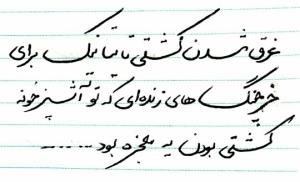 غرق شدن کشتی تایتانیک برای
خرچنگ های زنده‌ای که تو آشپزخونه
کشتی بودن یه معجزه بود ......